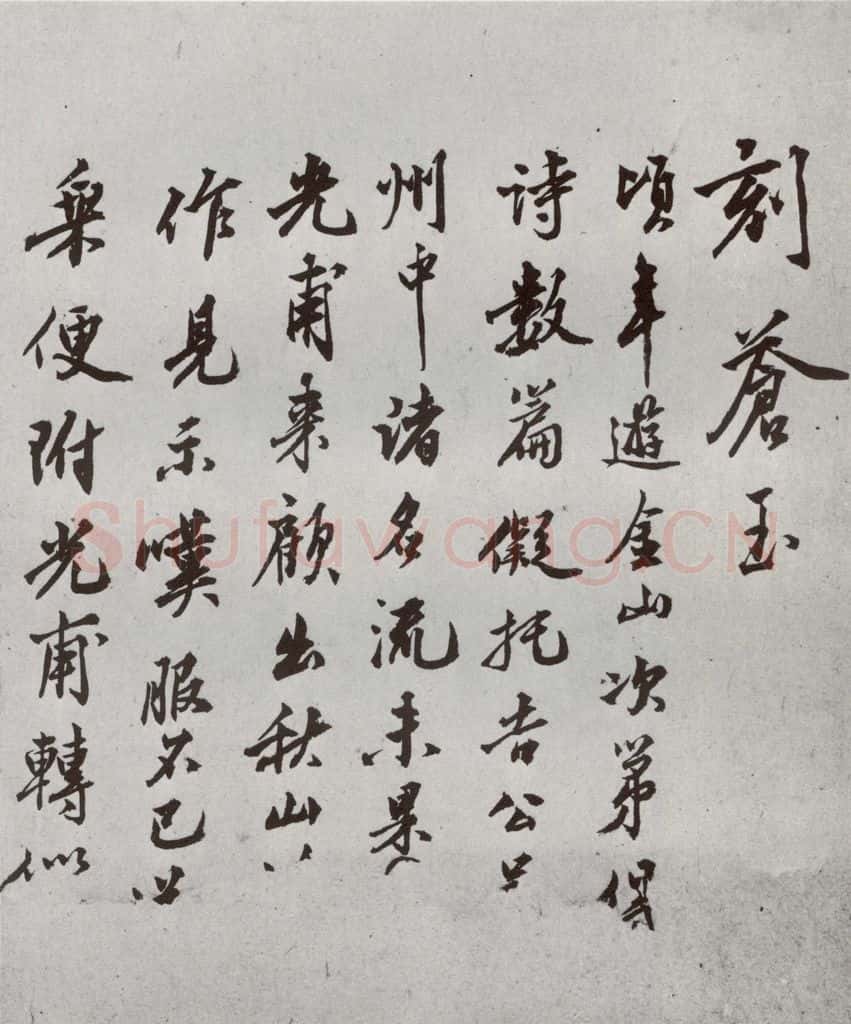 刻蒼玉
頃年遊金山次第得
詩數篇儗托吉公
州中諸名流未果
光甫来顧出秋山
作見示嘆服不已
乘便附光甫轉似
Shufawang.CN